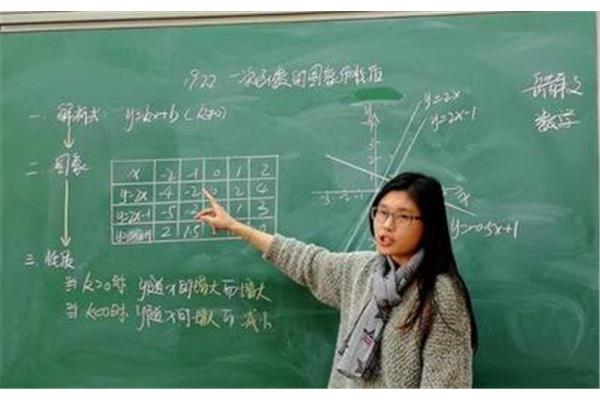 19.2.2 一次函数的图象和性质
一、解析式: y=kx+b (k≠0)
二、图象
x -2 -1 0 1 2
y=2x -4 -2 2 4
y=2x-1 -5 1 3
2 1.5
三、性质
当 k>0时 y随x的增大而增大
当 k<0时 y随x的增大而减小
y=2x
y=2x-1
-3 -2 -1
x
y=-0.5x+1
数学